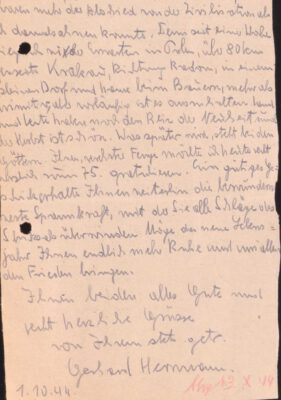 waren mehr das Abschied von der Zivilisation als
ich damals ahnen konnte. Denn seit eine Woche
liege ich mitten im Osten in Polen, über 80 km
Krakau, Richtung Radom, in einem
kleinen Dorf und hause beim Bauern, mehr als
primitiv, aber vorläufig ist es auszuhalten
und heute haben wir den Reiz der Neuheit und
der Herbst ist schön. Was später wird, steht bei den
Göttern. Ihnen, verehrte Frau möchte ich heute
herzlich zum 75. gratulieren. Ein gütiges Ge-
schick erhalte Ihnen weiterhin die bewundern-
werte Spannkraft, mit der Sie alle Schläge des
Schicksals überwunden. Möge das neue Lebens-
jahr Ihnen endlich mehr Ruhe und uns allen
den Frieden bringen.
Ihnen beiden alles Gute und
recht herzliche Grüsse
von Ihrem stets getr.
Gerhard Hermann.
1.10.44.
13 X 44